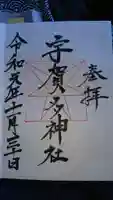 奉拝
宇賀多神社
令和六年十一月三十日